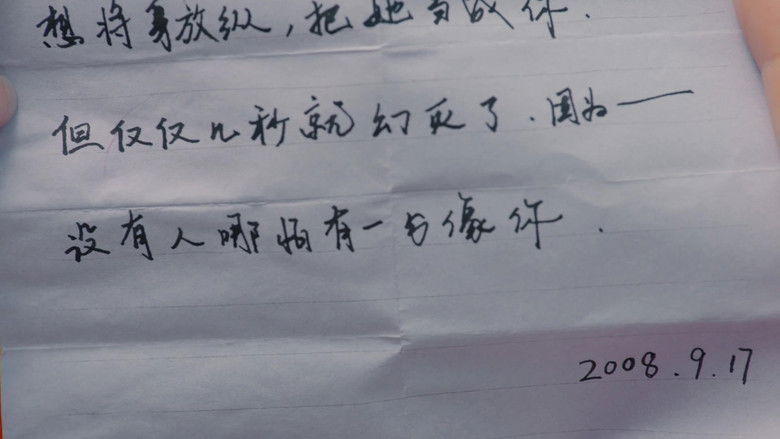 想将身放纵，把她当成你．
但仅仅几秒就幻灭了．因为——
没有人哪怕有一与像你．
2008.9.17